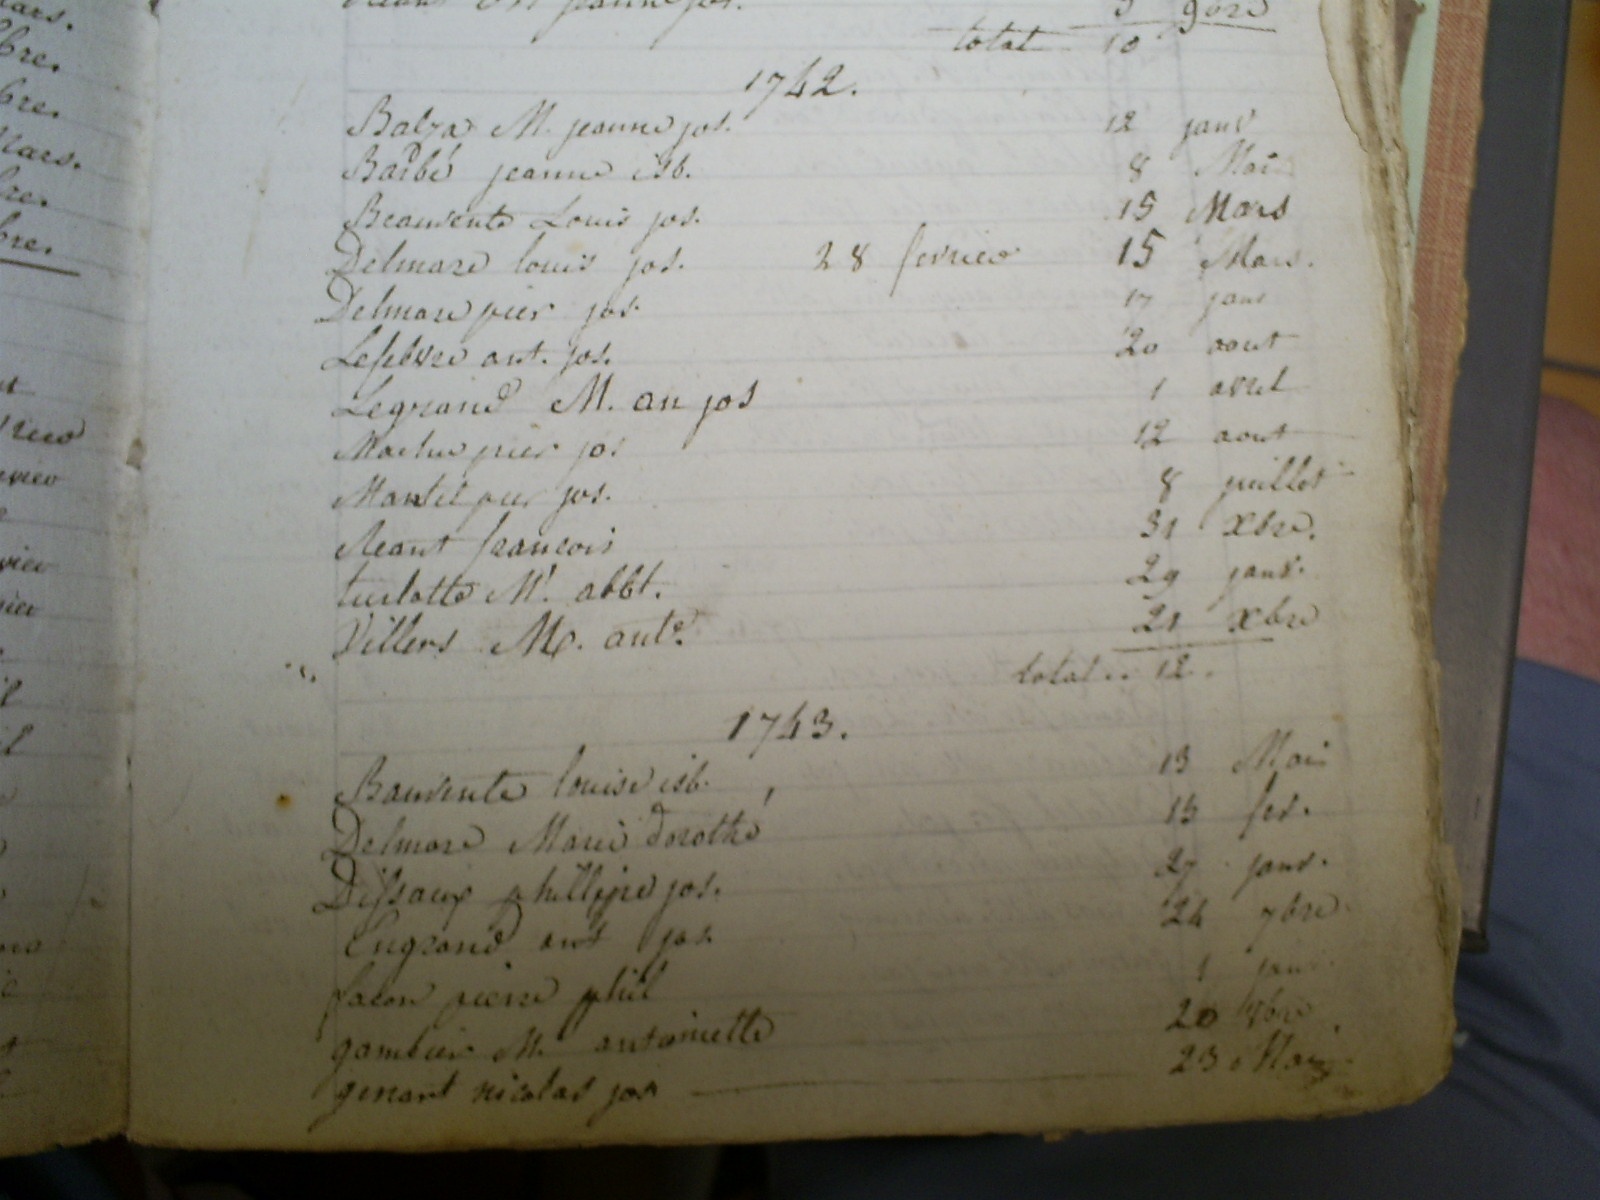 mars.
bre.
bre.
Mars.
bre.
bre.
9bre
total 10
1742.
Balza M. jeanne jos. 12 janv
Barbé jeanne isb. 8 Mai
Beauvente Louis jos. 15 Mars
Delmare louis jos. 28 fevrier 15 Mars.
Delmare pier jos. 17 janv
Lefebvre ant. jos. 20 aout
Legrand M. an jos 1 avril
pier jos 12 aout
Mantel pier jos. 8 juillet
françois 31 xbre.
turlotte M. abbt. 29 janv.
Villers M. ant. 21 xbre
total.. 12.
1743.
Bauvente louise isb. 13 Mai
Delmare Marie dorothé 13 fev.
phillippe jos. 27 janv.
Engrand ant jos. 24 7bre
facon pierre phil 1 janv
M. antoinette 20
genart nicolas jos 23 Mai